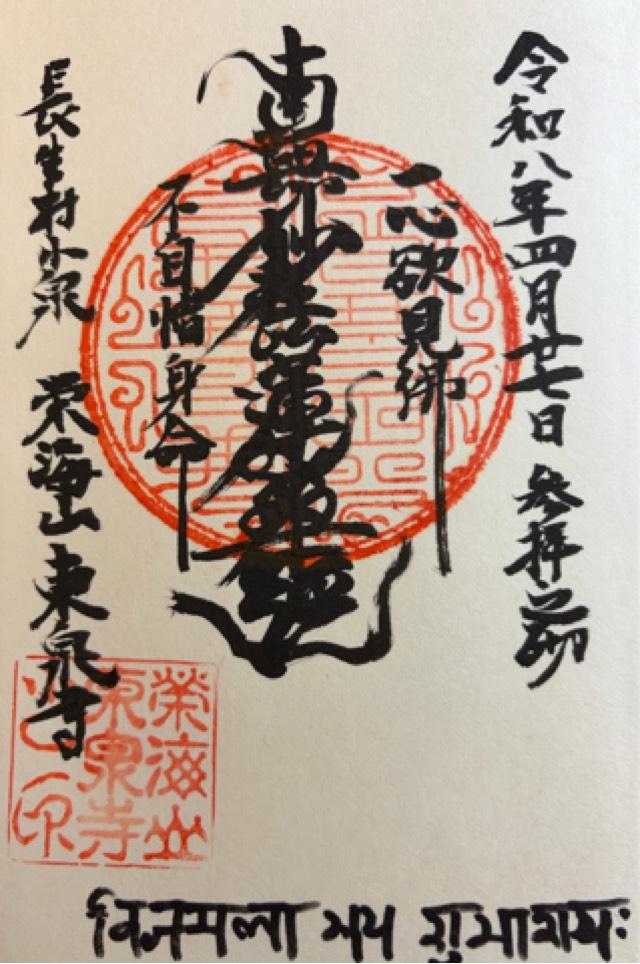 令和八年四月廿七日 参拝之砌
一心欲見佛
南無妙法蓮華経
不自惜身命
長生村小泉 栄海山東泉寺
榮海山
東泉寺
之印